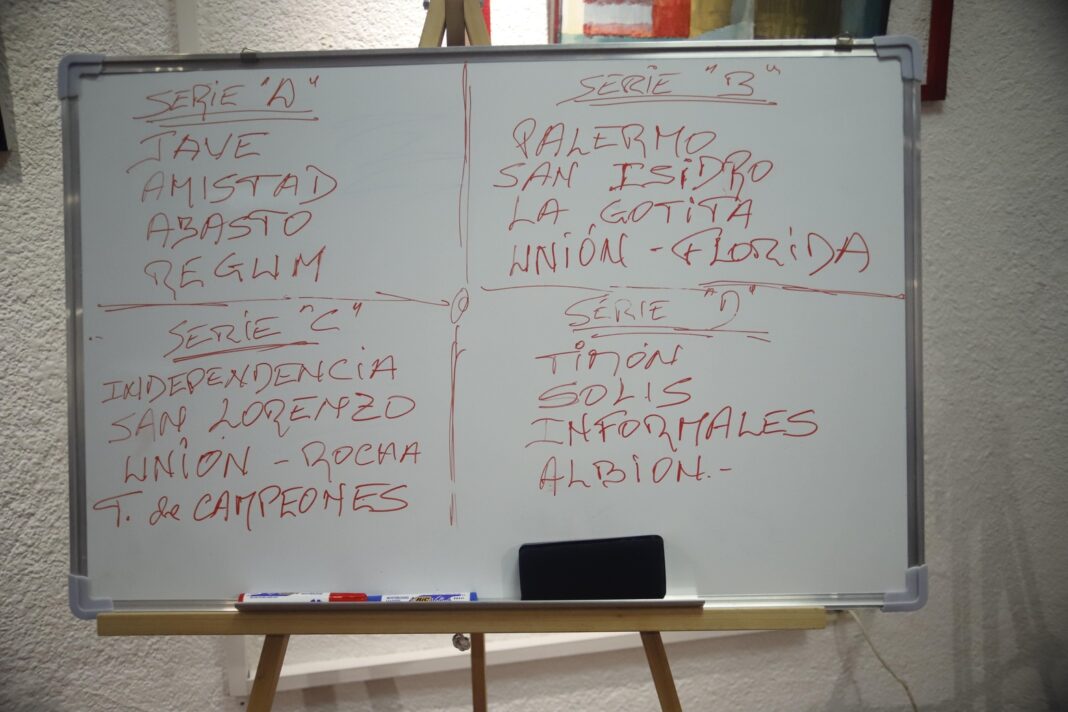 SERIE "A"
JAVE
AMISTAD
ABASTO
REGUM
SERIE "B"
PALERMO
SAN ISIDRO
LA GOTITA
UNIÓN - FLORIDA
SERIE "C"
INDEPENDENCIA
SAN LORENZO
UNIÓN - ROCHA
T. de CAMPEONES
SERIE "D"
TIMÓN
SOLIS
INFORMALES
ALBION.-
BIC